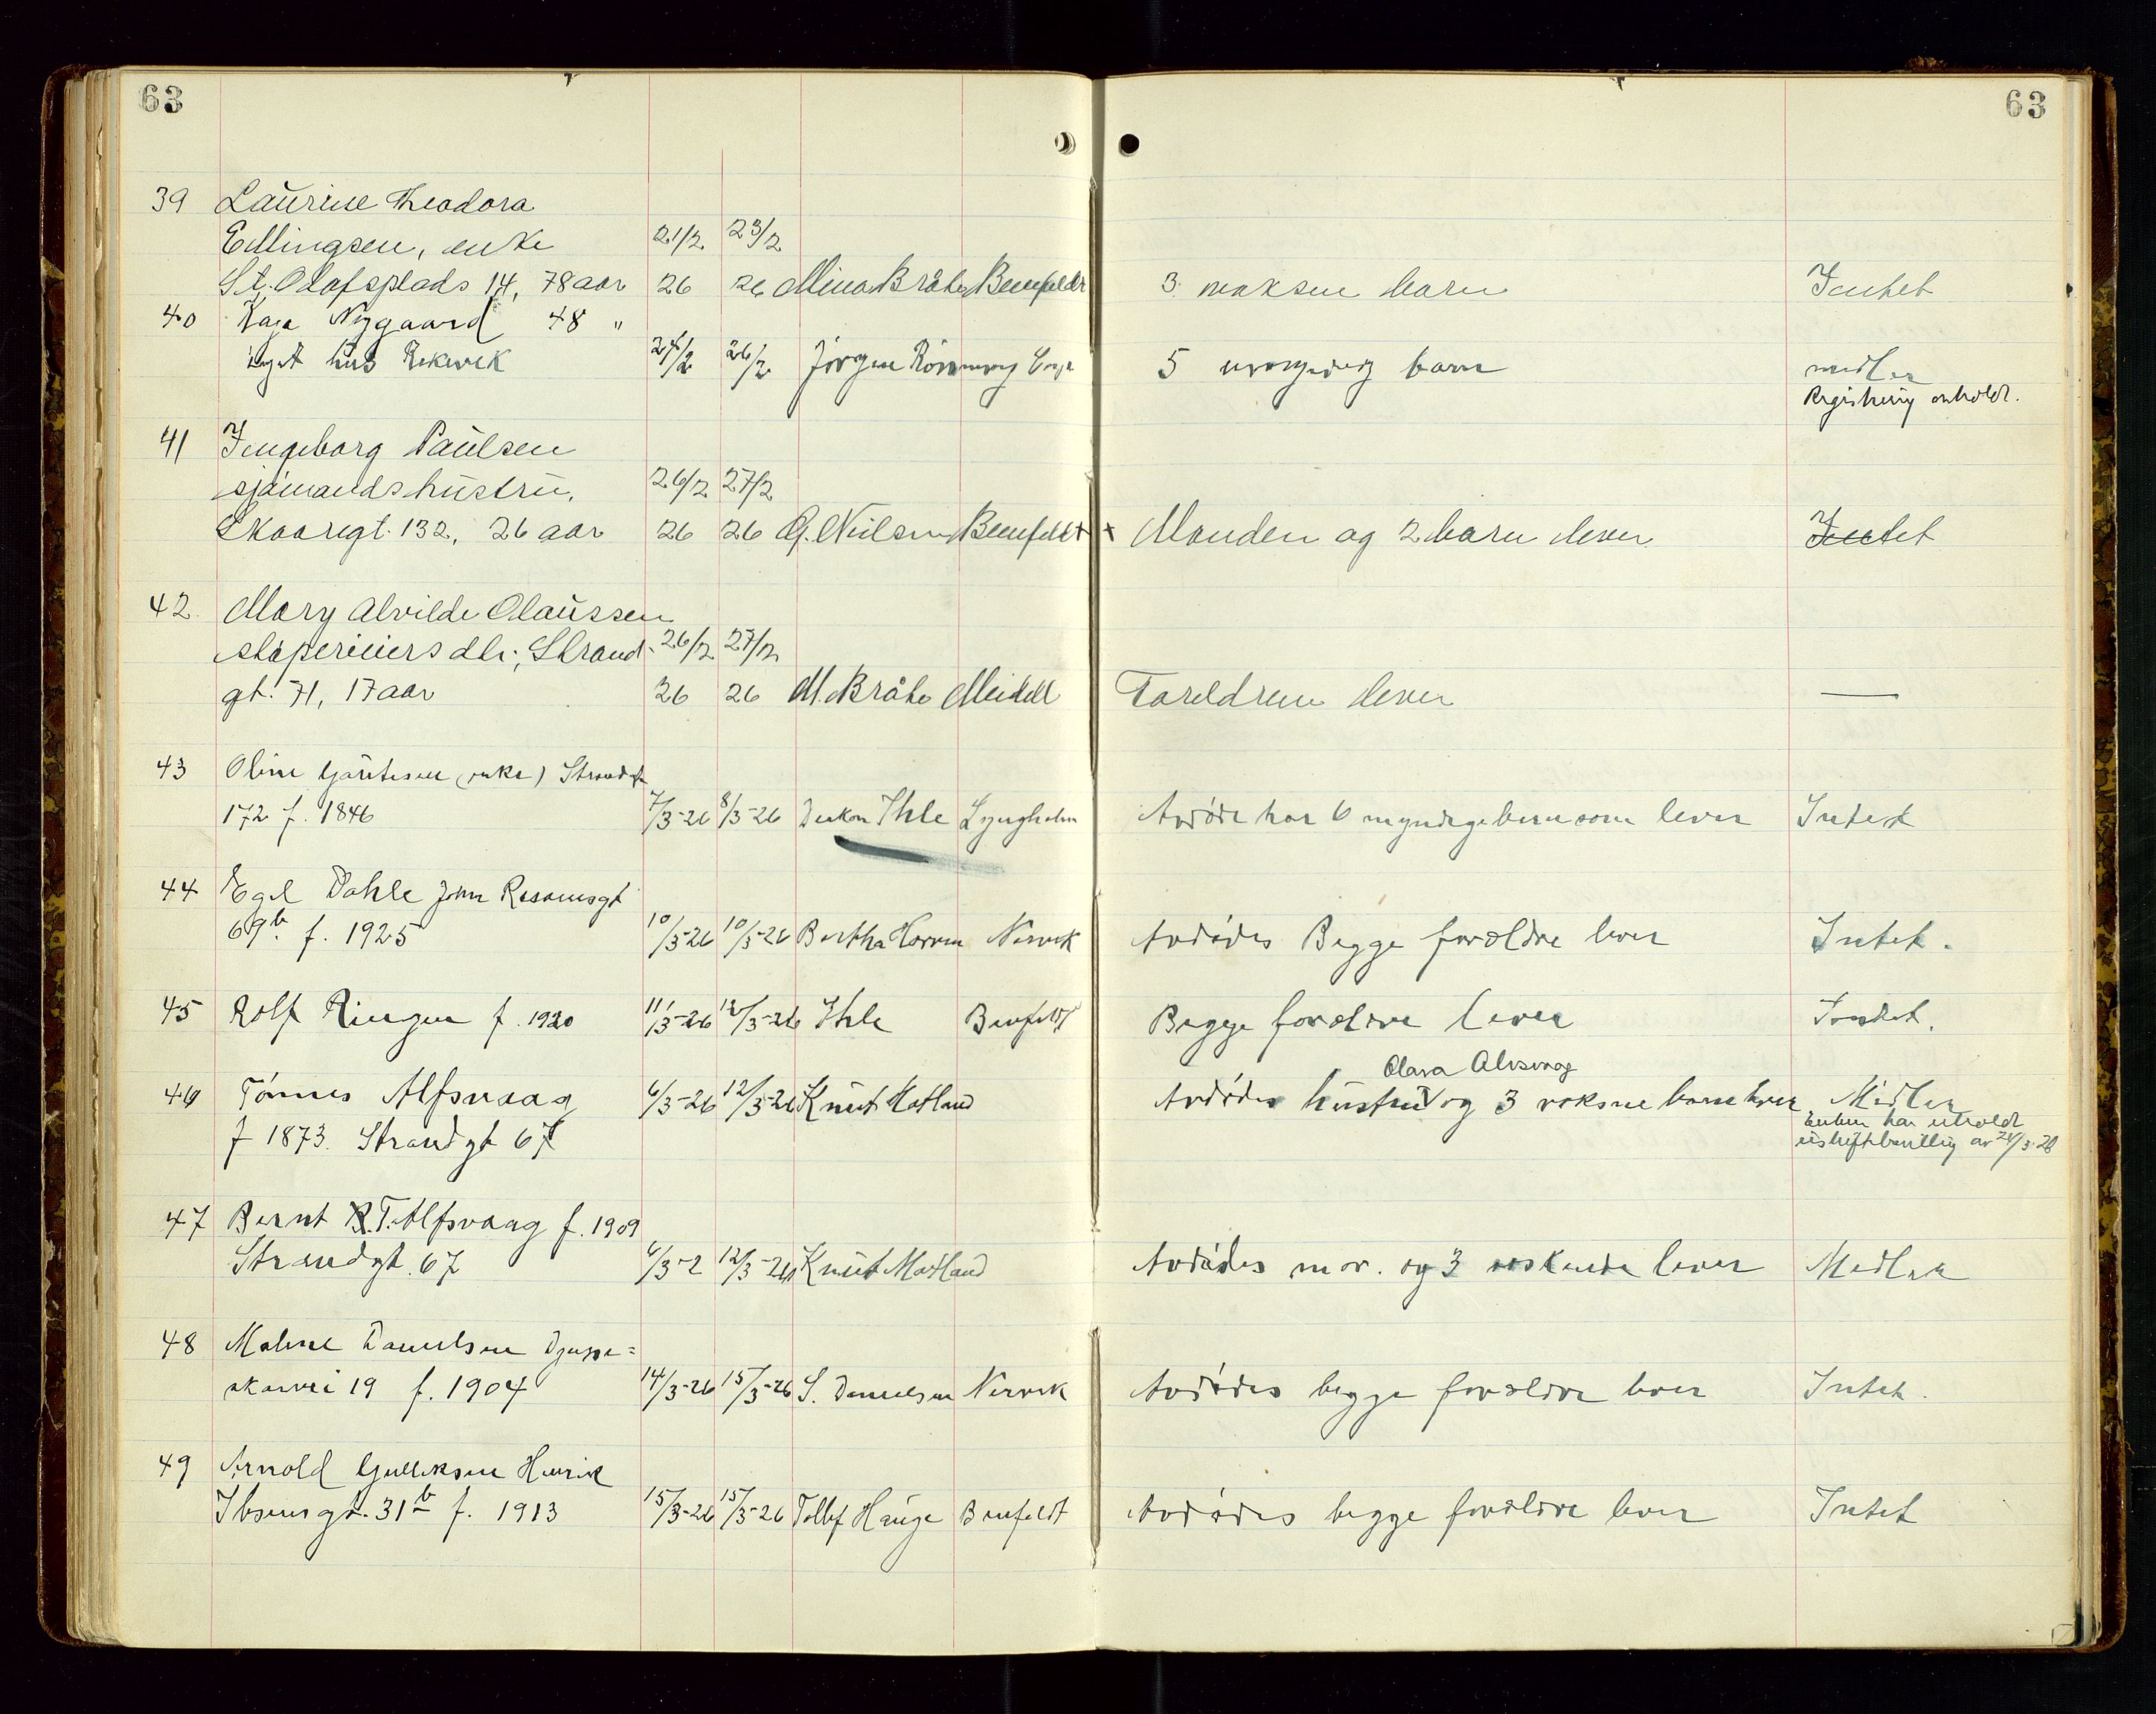 63
63
39 Laurine Theodora
Edlingsen, enke 21/2 23/2
St. Olafsplads 14, 78 aar 26 26 Mina Bråte Benfeldt 3 voksne barn Intet
40 Kaja Nygaard 48 "
eget hus 24/2 26/2 Jörgen 5 barn midler
Registrering
41 Ingeborg Paulsen
sjømandshustru, 26/2 27/2
Skaaregt. 132, 26 aar 26 26 G. Nielsen Benfeldt + + Manden og 2 barn lever Intet
42. Mary Alvilde Olaussen
støperieiers dtr; Strand- 26/2 27/2
gt. 71, 17 aar 26 26 M. Bråte Meidell Foreldrene lever —
43 Oline (enke) Strandgt
172 f. 1846 7/3-26 8/3-26 Deakon Ihle Lyngholm Avdøde har 6 myndige barn som lever Intet
44 Egil Dahle John
69b. f. 1925 10/3-26 10/3-26 Bertha Nervik Avdødes Begge forældre lever Intet.
45 Rolf f. 1920 11/3-26 12/3-26 Ihle Benfeldt Begge forældre lever Intet.
Clara Alvsvaag
46 Tönnes Alfsvaag 6/3-26 12/3-26 Knut Matland Avdødes hustru og 3 voksne barn lever Midler
Enken har
f 1873. Strandgt 67 uskiftebevilling av 24/3-26
47 Bernt T. Alfsvaag f. 1909
Strandgt. 67 6/3-2 12/3-26 Knut Matland Avdødes mor. og 3 søskende lever Midler
48 Maline Danielsen Djuppe=
skarvei 19 f. 1904 14/3-26 15/3-26 S. Danielsen Nervik Avdødes begge forældre lever Intet.
49 Arnold Gulliksen Henrik
Ibsensgt. 31b f. 1913 15/3-26 15/3-26 Tollef Hauge Benfeldt Avdødes begge forældre lever Intet